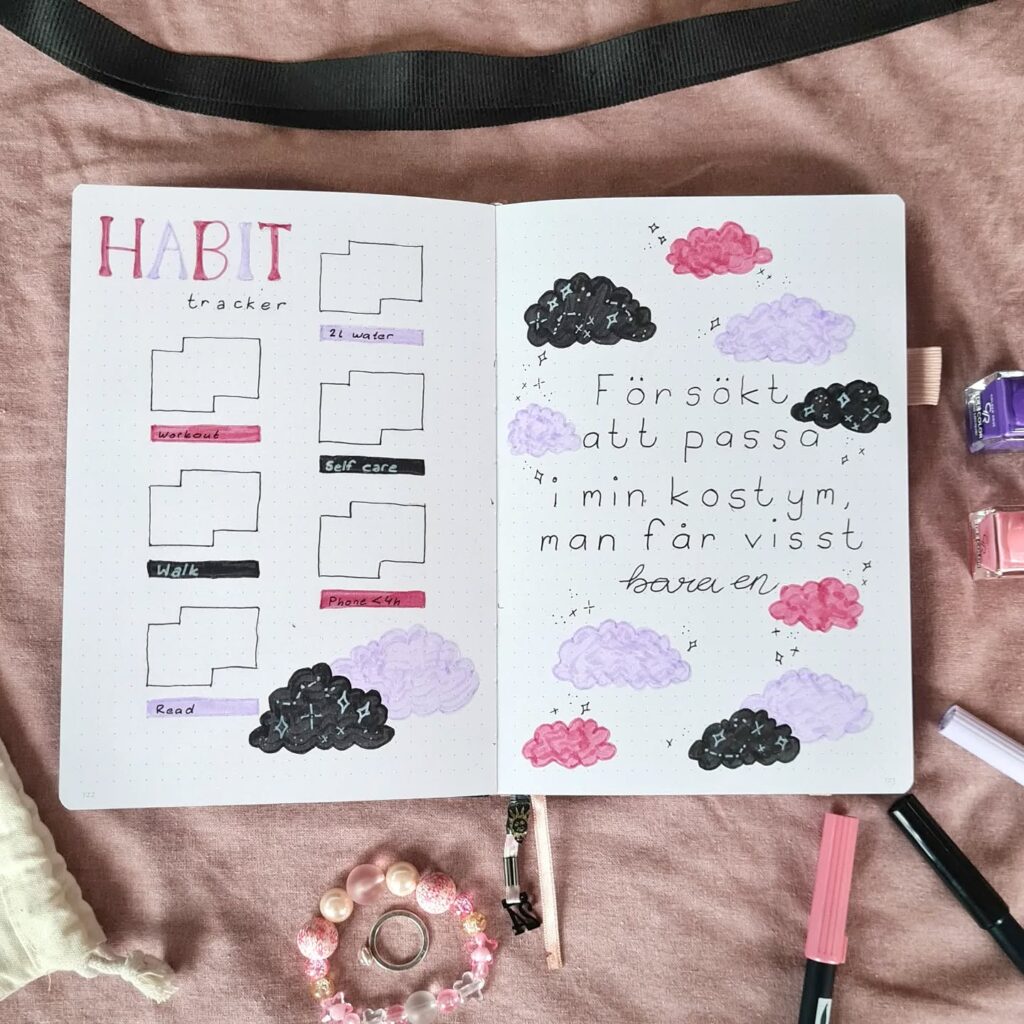 HABIT
tracker
2L water
Workout
Self care
Walk
Phone <4h
Read
122
Försökt
att passa
i min kostym,
man får visst
bara en
123